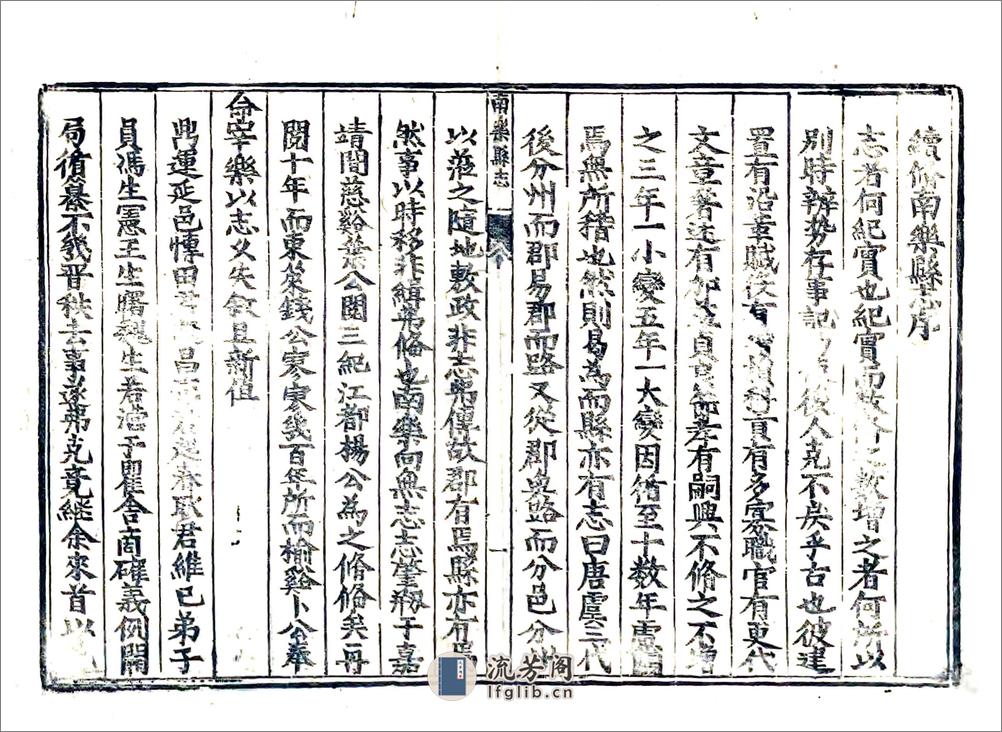 續脩南樂縣志序
志者何紀實也紀實而 增之者何所以
別時辨勢存事記 後人克不戾乎古也彼建
置有沿革賦役有 有多寡職官有更代
文章著述有 有嗣興不脩之不增
之三年一小變五年一大變因循至十數年
焉無所稽也然則曷為而縣亦有志曰唐虞三代
後分州而郡易郡而路又從郡與路而分邑分
以蒞之隨地敷政非志弗傳故郡有焉縣亦有
然事以時移非緝弗脩也南樂向無志志肇刱于嘉
靖間慈谿葉公閱三紀江都楊公為之脩脩矣一再
閱十年而東萊錢公寥寥幾百年所而榆谿卜公奉
命宰樂以志久失敘且新值
鼎運延邑博田 耿君維巳弟子
員馮生憲王生曙魏生若 于瞿舍商確義例開
局脩纂不幾晋秩去事遂弗克竟継余來首以
南樂縣志
一
流芳阁
lfglib.cn